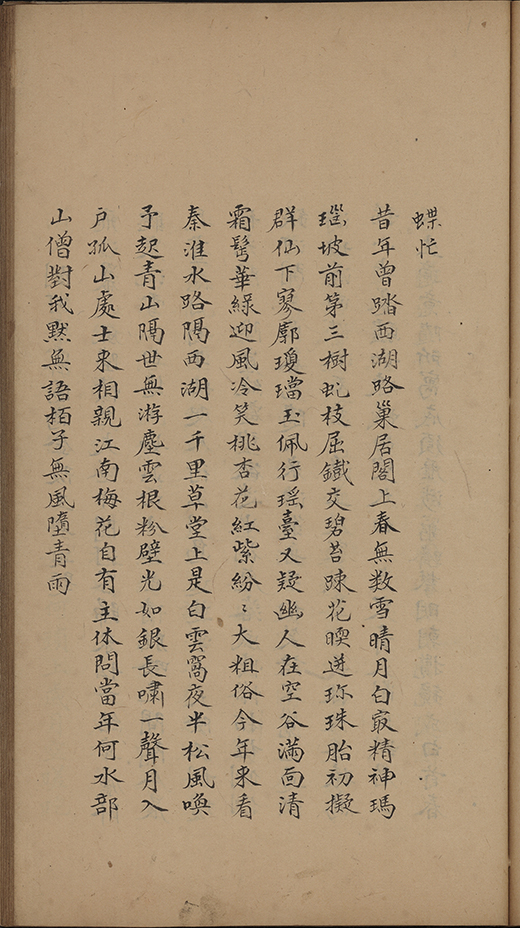 蝶忙
昔年曾踏西湖路巢居閣上春無数雪晴月白㝡精神瑪
瑙坡前第三樹虬枝屈鐵交碧苔踈花暎迸珎珠胎初擬
群仙下寥廓瓊璫玉佩行瑶臺又疑幽人在空谷滿面清
霜髩華綠迎風冷笑桃杏花紅紫紛〻大粗俗今年來看
秦淮水路隔西湖一千里草堂上是白雲窩夜半松風喚
予起青山隔世無游塵雲根粉壁光如銀長嘯一聲月入
户孤山處士來相親江南梅花自有主休問當年何水部
山僧對我默無語栢子無風墮青雨